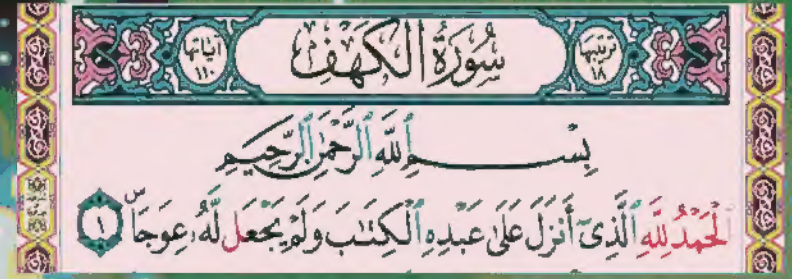 ترتيبها ١٨ سُورَةُ الكَهْفِ آياتها ١١٠
بِسْمِ ٱللَّهِ ٱلرَّحْمَٰنِ ٱلرَّحِيمِ
ٱلْحَمْدُ لِلَّهِ ٱلَّذِىٓ أَنزَلَ عَلَىٰ عَبْدِهِ ٱلْكِتَٰبَ وَلَمْ يَجْعَل لَّهُۥ عِوَجَاۜ ١